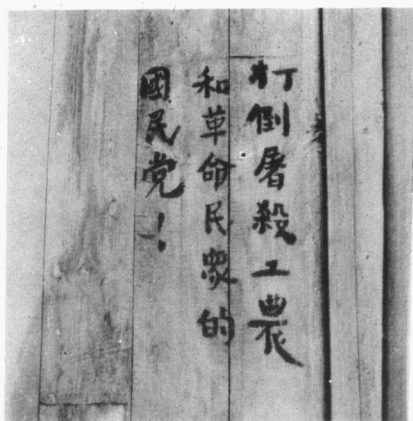 打倒屠殺工農
和革命民眾的
國民党！